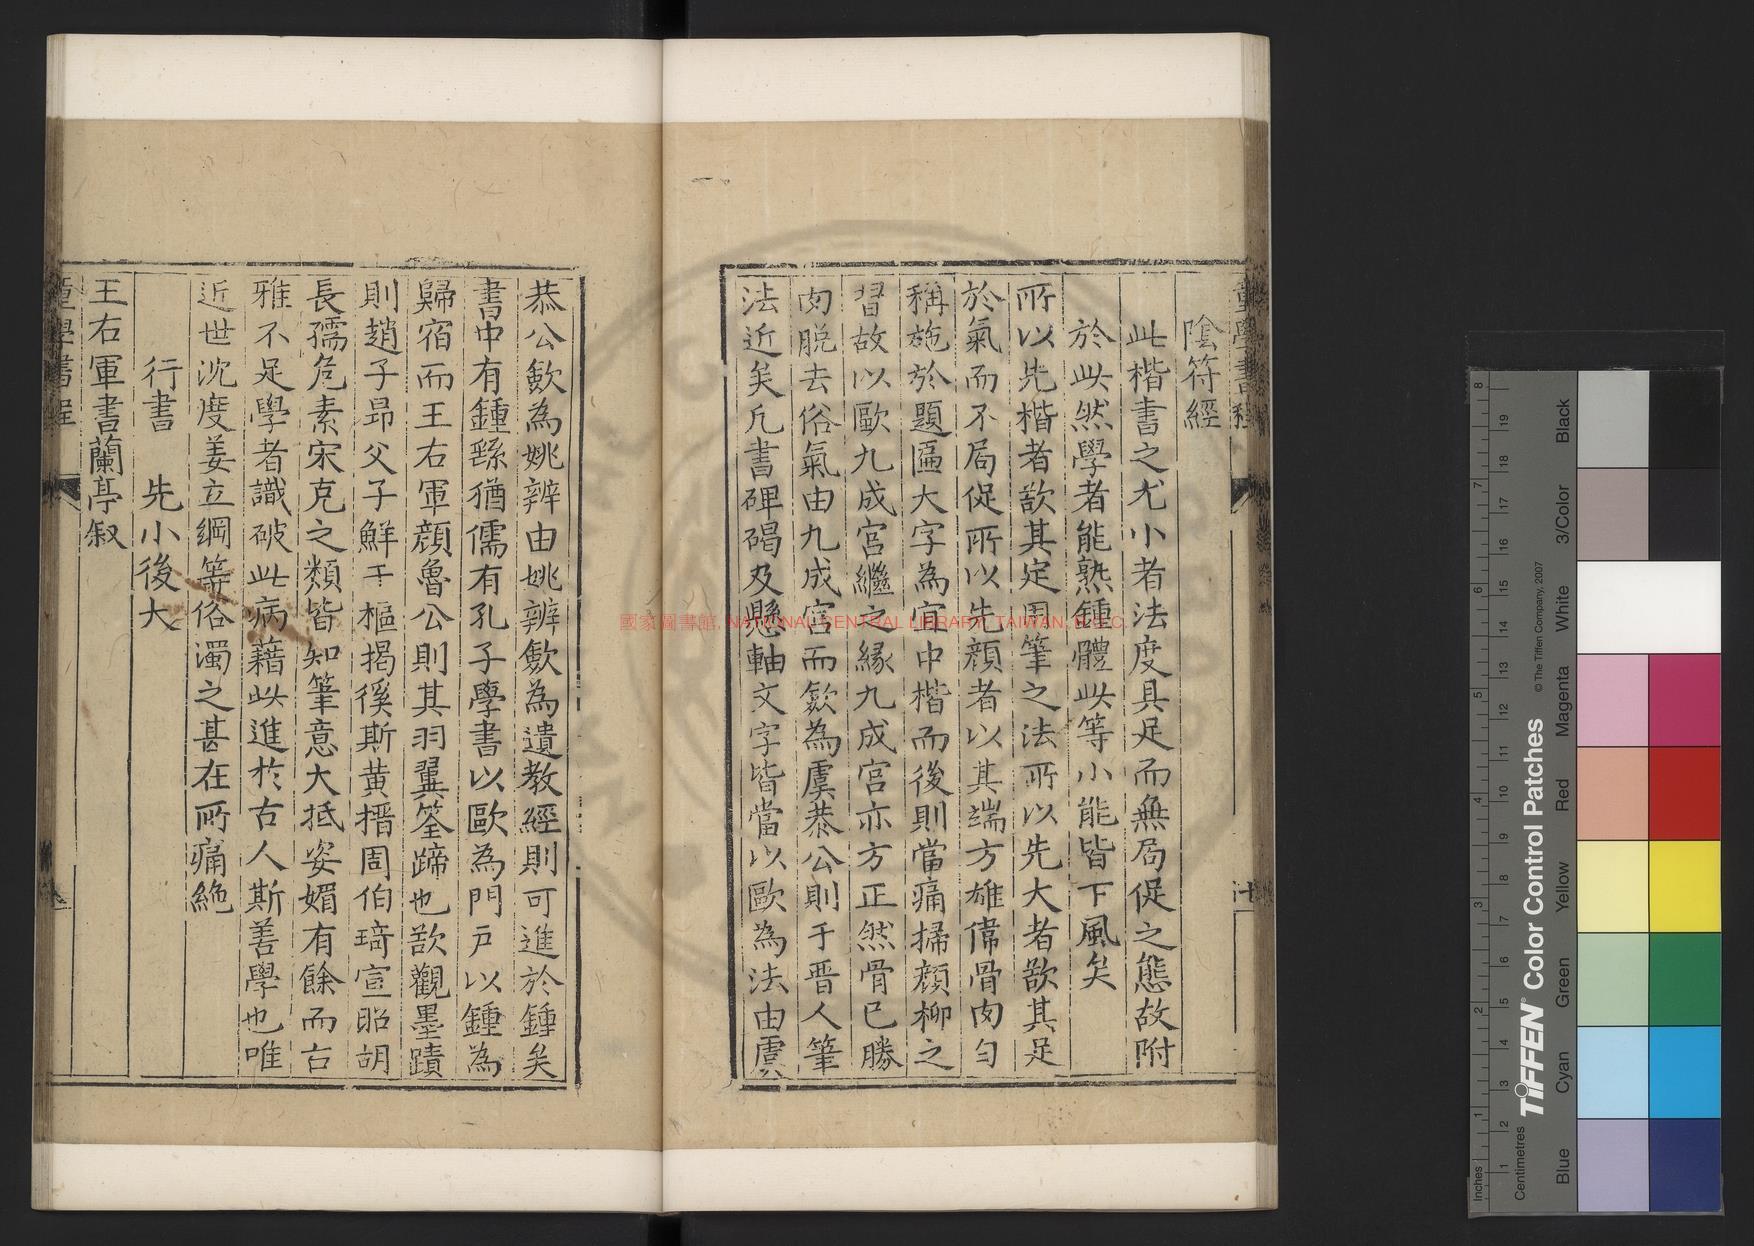 童學書程
陰符經
此楷書之尤小者法度具足而無局促之態故附
於此然學者能熟鍾體此等小能皆下風矣
所以先楷者欲其定用筆之法所以先大者欲其足
於氣而不局促所以先顔者以其端方雄偉骨肉勻
稱施於題匾大字為宜中楷而後則當痛掃顔柳之
習故以歐九成宮繼之緣九成宮亦方正然骨已勝
肉脱去俗氣由九成宮而歛為虞恭公則于晋人筆
法近矣凡書碑碣及懸軸文字皆當以歐為法由虞
恭公歛為姚辨由姚辨歛為遺教經則可進於鍾矣
書中有鍾繇猶儒有孔子學書以歐為門戸以鍾為
歸宿而王右軍顔魯公則其羽翼筌蹄也欲觀墨蹟
則趙子昂父子鮮于樞揭徯斯黄搢周伯琦宣昭胡
長孺危素宋克之類皆知筆意大抵姿媚有餘而古
雅不足學者識破此病藉此進於古人斯善學也唯
近世沈度姜立綱等俗濁之甚在所痛絶
行書 先小後大
王右軍書蘭亭叙
童學書程
國家圖書館, NATIONAL CENTRAL LIBRARY, TAIWAN, R.O.C.
Inches
Centimetres
1 2 3 4 5 6 7 8
1 2 3 4 5 6 7 8 9 10 11 12 13 14 15 16 17 18 19
TIFFEN® Color Control Patches
© The Tiffen Company, 2007
Blue Cyan Green Yellow Red Magenta White 3/Color Black